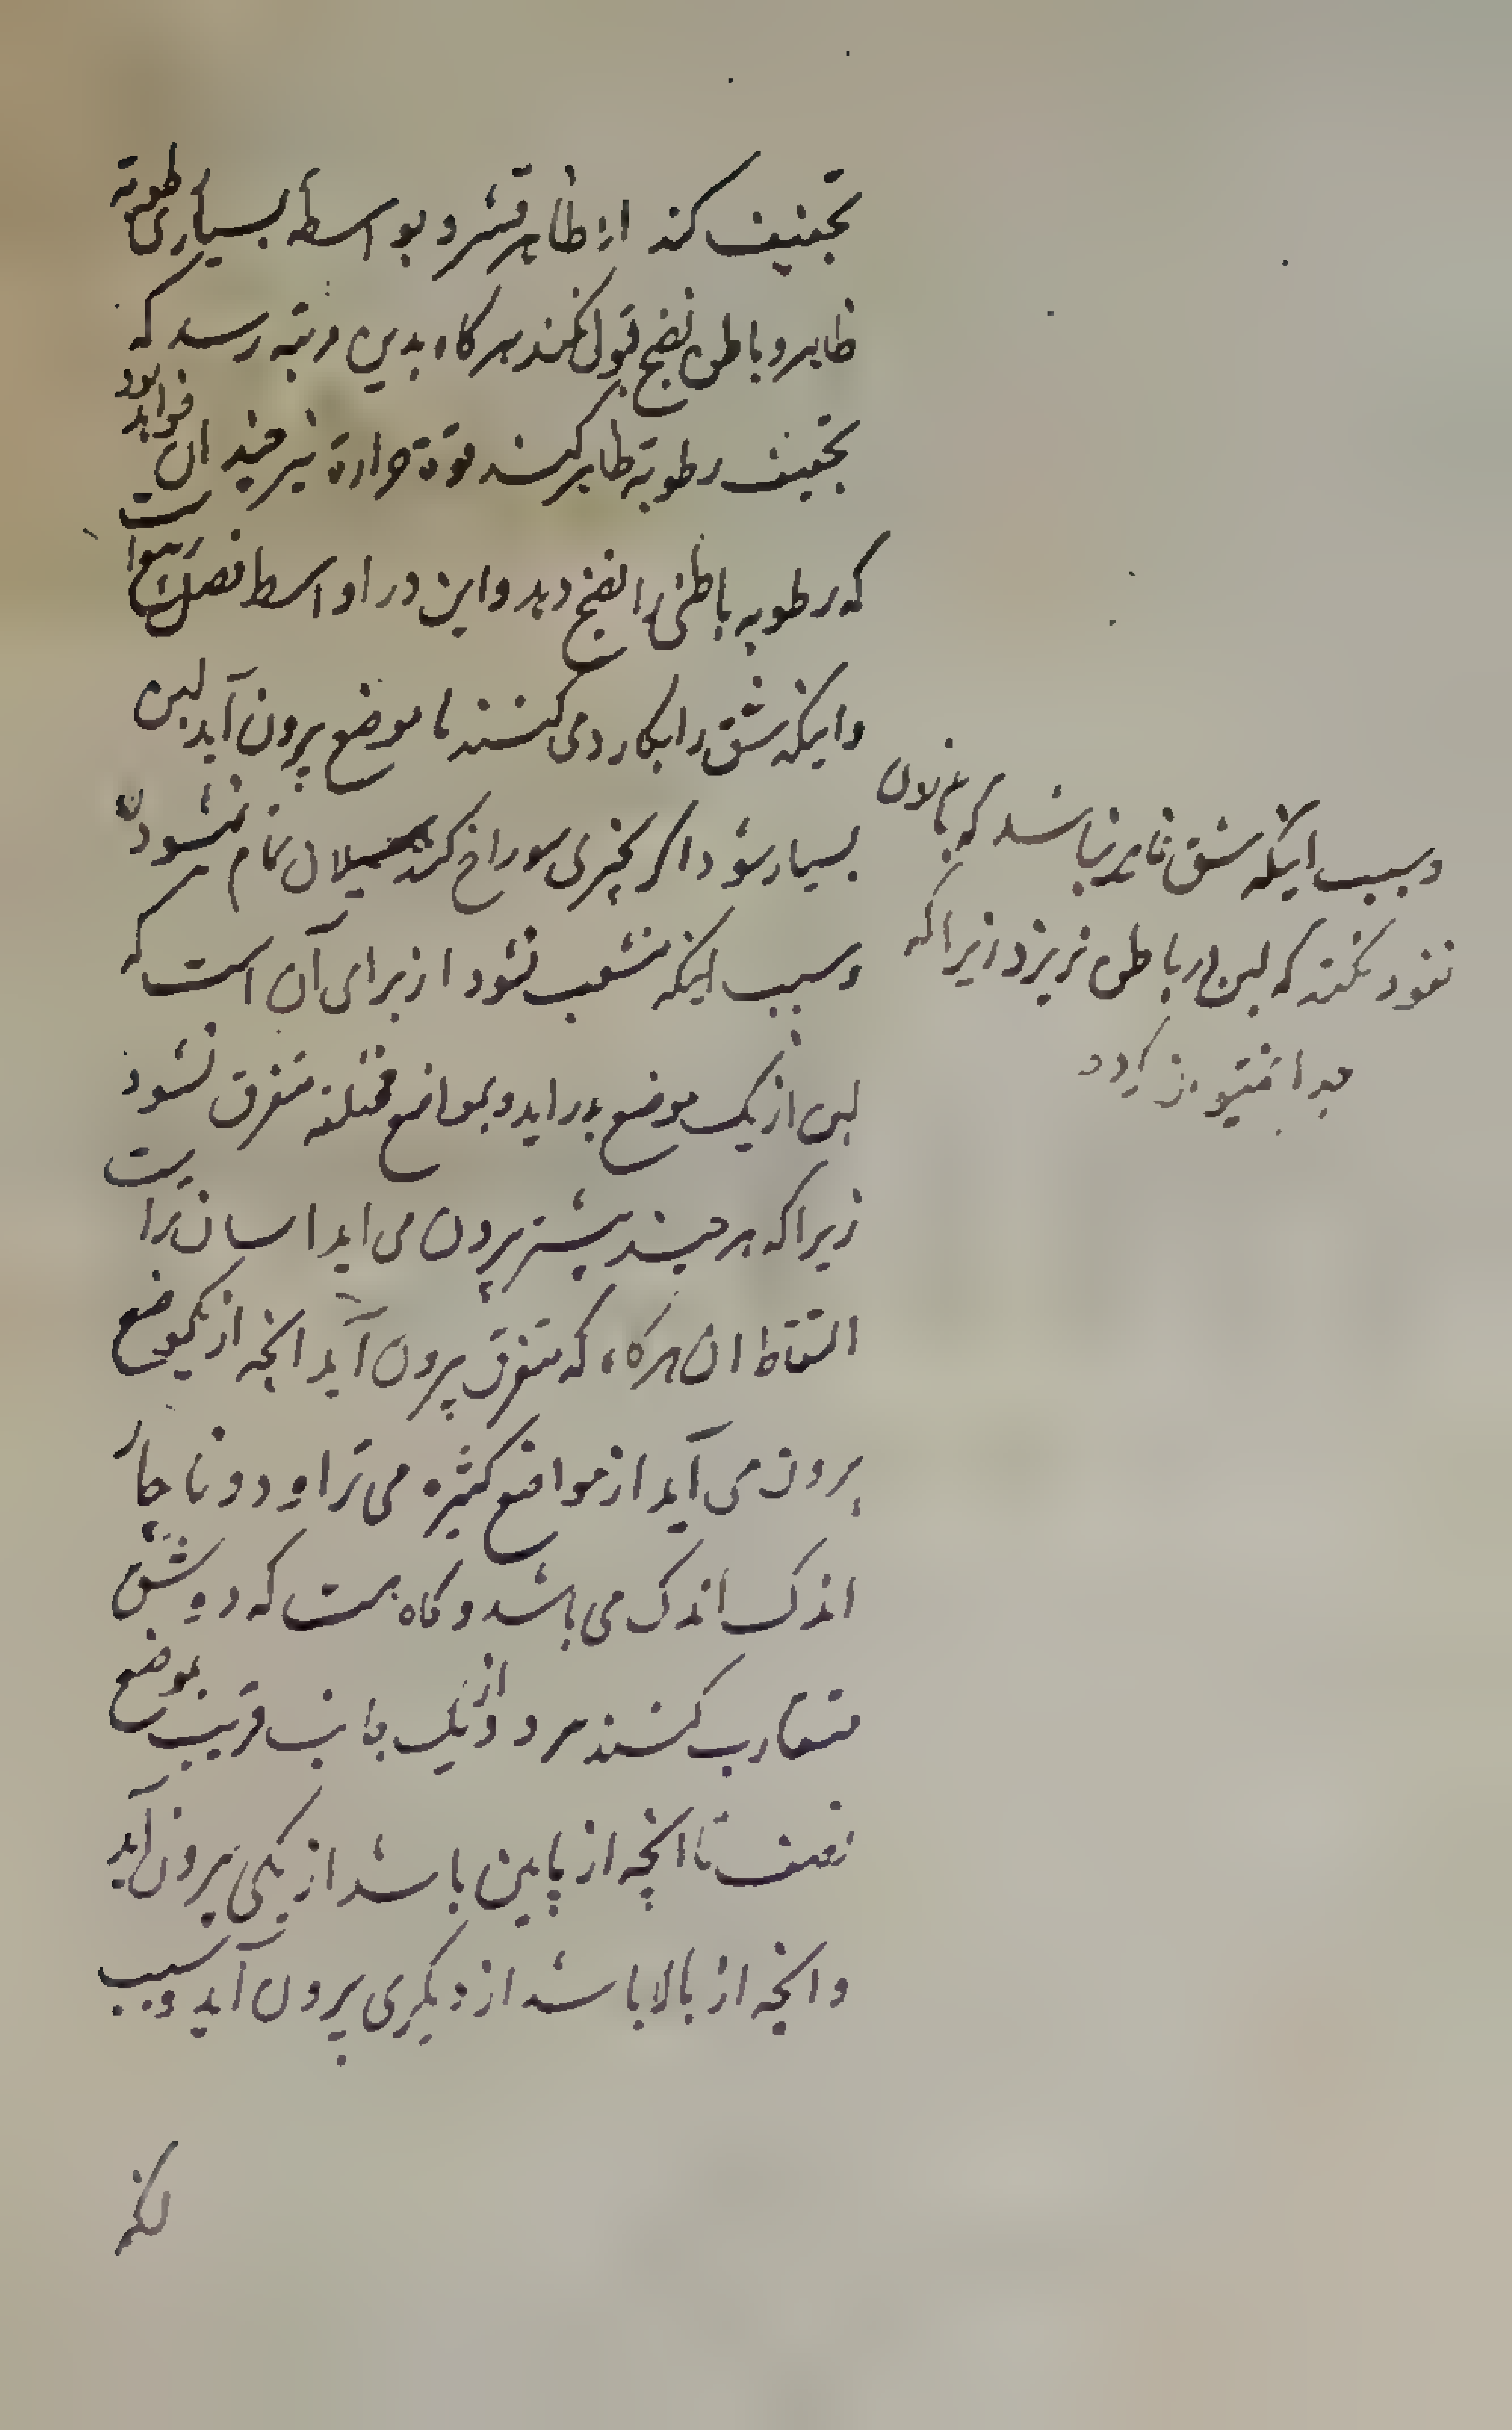 تجفیف کند از ظاهر قشر و بواسطه بسیاری رطوبة
ظاهر و باطن نضج قبول نکند هر کاه بدین مرتبه رسد که
تجفیف رطوبة ظاهر کنند قوة حرارة نیز چند ان خواهد بود
که رطوبه باطنی را نضج دهد و این در اواسط فصل ربیع است
و اینکه شق را بکارد می کنند تا موضع پرون آید لبن
بسیار شود اکر بچیزی سوراخ کنند سیلان تمام نشود
و سبب اینکه منشعب نشود از برای آن است که
لبن از یک موضع بدر اید و بمواضع مختلفه متفرق نشود
زیرا که هر چند پیشتر پرون می اید اسان تر است
التقاط ان هرکاه که متفرق پرون آید انچه از یکموضع
پرون می آید از مواضع کثیره می تراود و ناچار
اندک اندک می باشد و کاه هست که دو شق
متقارب کنند هر دو از یک جانب قریب بموضع
نصف تا انچه از پاین باشد از یکی پرون آید
و انچه از بالا باشد از دیکری پرون آید و سبب
و سبب اینکه شق غایر نباشد که تا بان
نفود نکند که لبن در باطن نریزد زیرا که